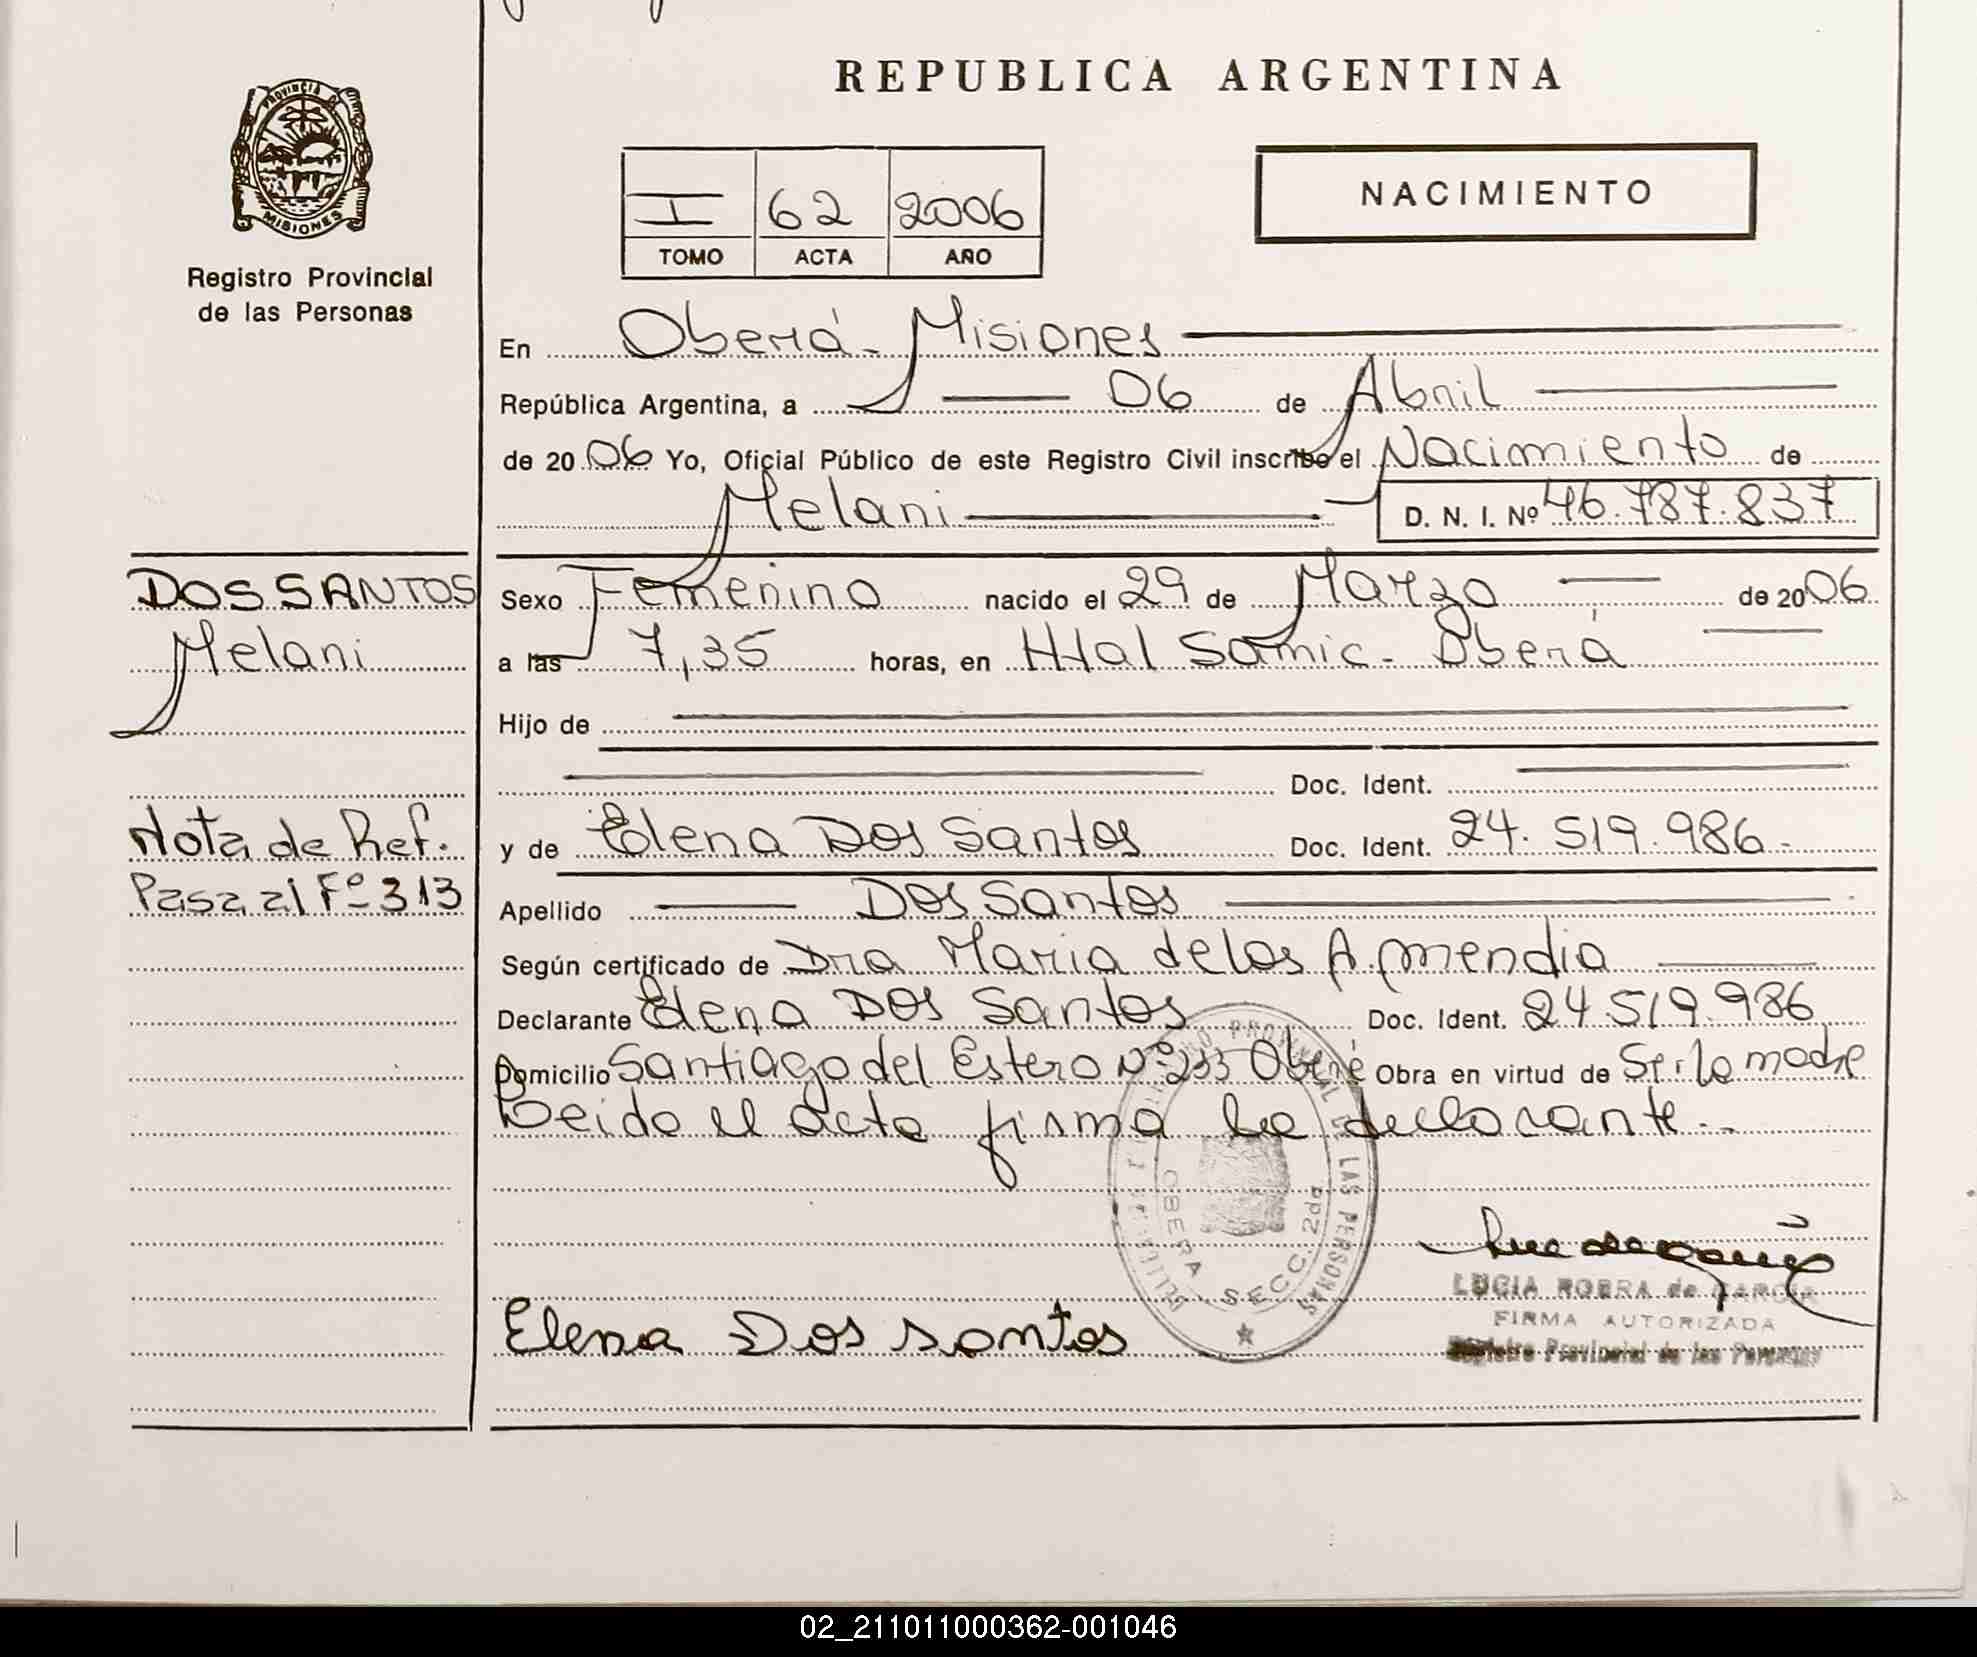 REPUBLICA ARGENTINA
PROVINCIA DE
MISIONES
Registro Provincial
de las Personas
I 62 2006
TOMO ACTA AÑO
NACIMIENTO
En Oberá - Misiones
República Argentina, a 06 de Abril
de 2006 Yo, Oficial Público de este Registro Civil inscribo el Nacimiento de
Melani D. N. I. Nº 46.787.837
DOS SANTOS
Melani
Nota de Ref.
Pasa al Fº 313
Sexo Femenino nacido el 29 de Marzo de 2006
a las 7,35 horas, en Htal Samic - Oberá
Hijo de
Doc. Ident.
y de Elena Dos Santos Doc. Ident. 24.519.986
Apellido Dos Santos
Según certificado de Dra Maria de los A. Mendia
Declarante Elena Dos Santos Doc. Ident. 24.519.986
Domicilio Santiago del Estero Nº 233 Oberá Obra en virtud de Ser la madre
Leida el acta firma la declarante.-
PROVINCIAL DE LAS PERSONAS
OBERA SECC. 2da
LUCIA ROBRA de GARCIA
FIRMA AUTORIZADA
Registro Provincial de las Personas
Elena Dos santos
02_211011000362-001046